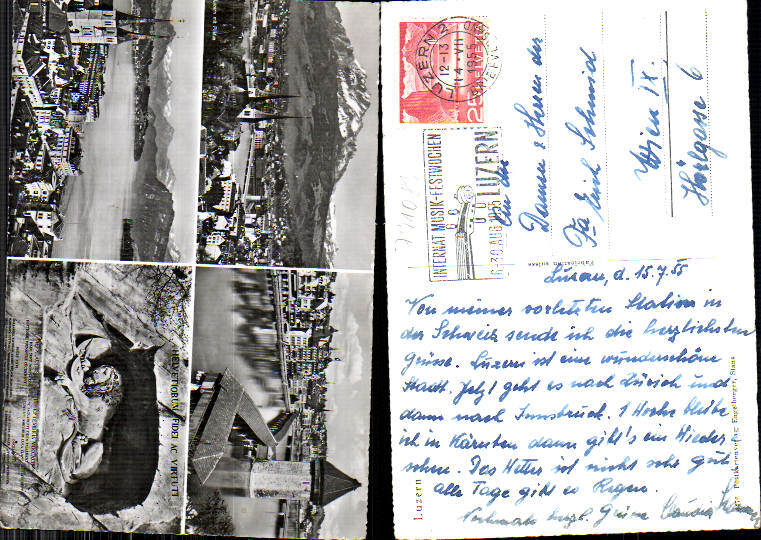 HELVETIORUM FIDEI AC VIRTUTI
LUZERN 2
12-13
14.VII
1955
HELVETIA
25
INTERNAT. MUSIK-FESTWOCHEN
LUZERN
30. AUG. 1955
An die
Damen & Herren der
Fa Erich Schmid
Wien IX.
Hörlgasse 6
Fabrication suisse
Luzern, d. 15.7.55
Von meiner vorletzten Station in
der Schweiz sende ich die herzlichsten
Grüsse. Luzern ist eine wunderschöne
Stadt. Jetzt geht es nach Zürich und
dann nach Innsbruck. 1 Woche bleibe
ich in Kärnten dann gibt's ein Wieder
sehen. Das Wetter ist nicht sehr gut
alle Tage gibt es Regen.
Nochmals Grüsse Claudia
Luzern
Postkartenverlag Engelberger, Stans